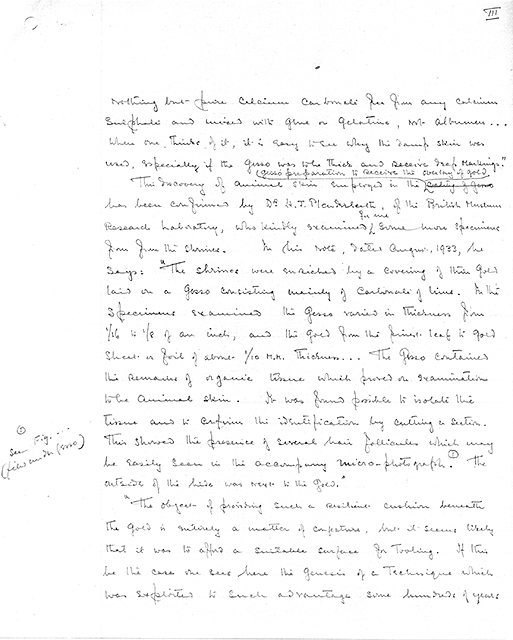 III
Nothing but pure Calcium Carbonate free from any calcium
Sulphate and mixed with Glue or Gelatine, not albumen...
When one thinks of it, it is easy to see why the damp skin was
used, especially if the Gesso was to be thick and receive deep markings."
(gesso preparation to receive the overlay of gold
The discovery of animal skin employed in the
has been confirmed by Dr H.J. Plenderleith, of the British Museum
Research Laboratory, who kindly examined, for me, some more specimens
from the shrines. In his note, dated August, 1933, he
says: "The shrines were enriched by a covering of thin Gold
laid on a Gesso consisting mainly of Carbonate of lime. In the
Specimens examined the Gesso varied in thickness from
1/16 to 1/8 of an inch, and the Gold from the finest leaf to Gold
Sheet or foil of about 1/10 M.M. thickness... The Gesso contained
the remains of organic tissue which proved on examination
to be animal skin. It was found possible to isolate this
tissue and to confirm the identification by cutting a section.
This showed the presence of several hair follicules which may
be easily seen in the accompany micro-photograph. ① The
outside of the hide was next to the Gold."
"The object of providing such a resilient cushion beneath
the gold is entirely a matter of conjecture, but it seems likely
that it was to afford a suitable surface for Tooling. If this
be the case one sees here the Genesis of a Technique which
was exploited to such advantage some hundreds of years
①
see Fig....
(filed under Gesso)